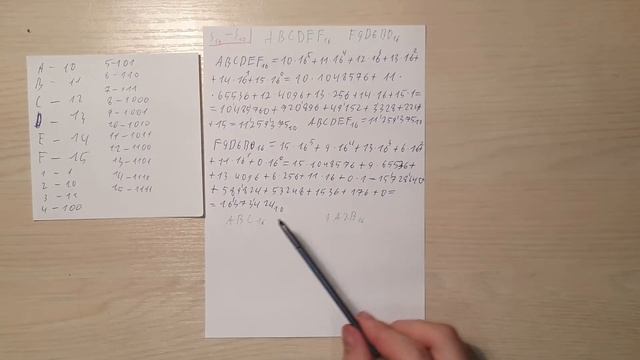 A - 10
B - 11
C - 12
D - 13
E - 14
F - 15
1 - 1
2 - 10
3 - 11
4 - 100
5-101
6-110
7-111
8-1000
9-1001
10-1010
11-1011
12-1100
13-1101
14-1110
15-1111
ABCDEF₁₆ F9D6B0₁₆
ABCDEF₁₆ = 10·16⁵+11·16⁴+12·16³+13·16²+
+14·16¹+15·16⁰=10·1048576+11·
·65536+12·4096+13·256+14·16+15·1=
=10485760+720896+49152+3328+224+
+15=11'259'375₁₀ ABCDEF₁₆=11'259'375₁₀
F9D6B0₁₆=15·16⁵+9·16⁴+13·16³+6·16²
+11·16¹+0·16⁰=15·1048576+9·65536+
+13·4096+6·256+11·16+0·1=15728640
+589'824+53248+1536+176+0=
ABC₁₆ 1A2B₁₆